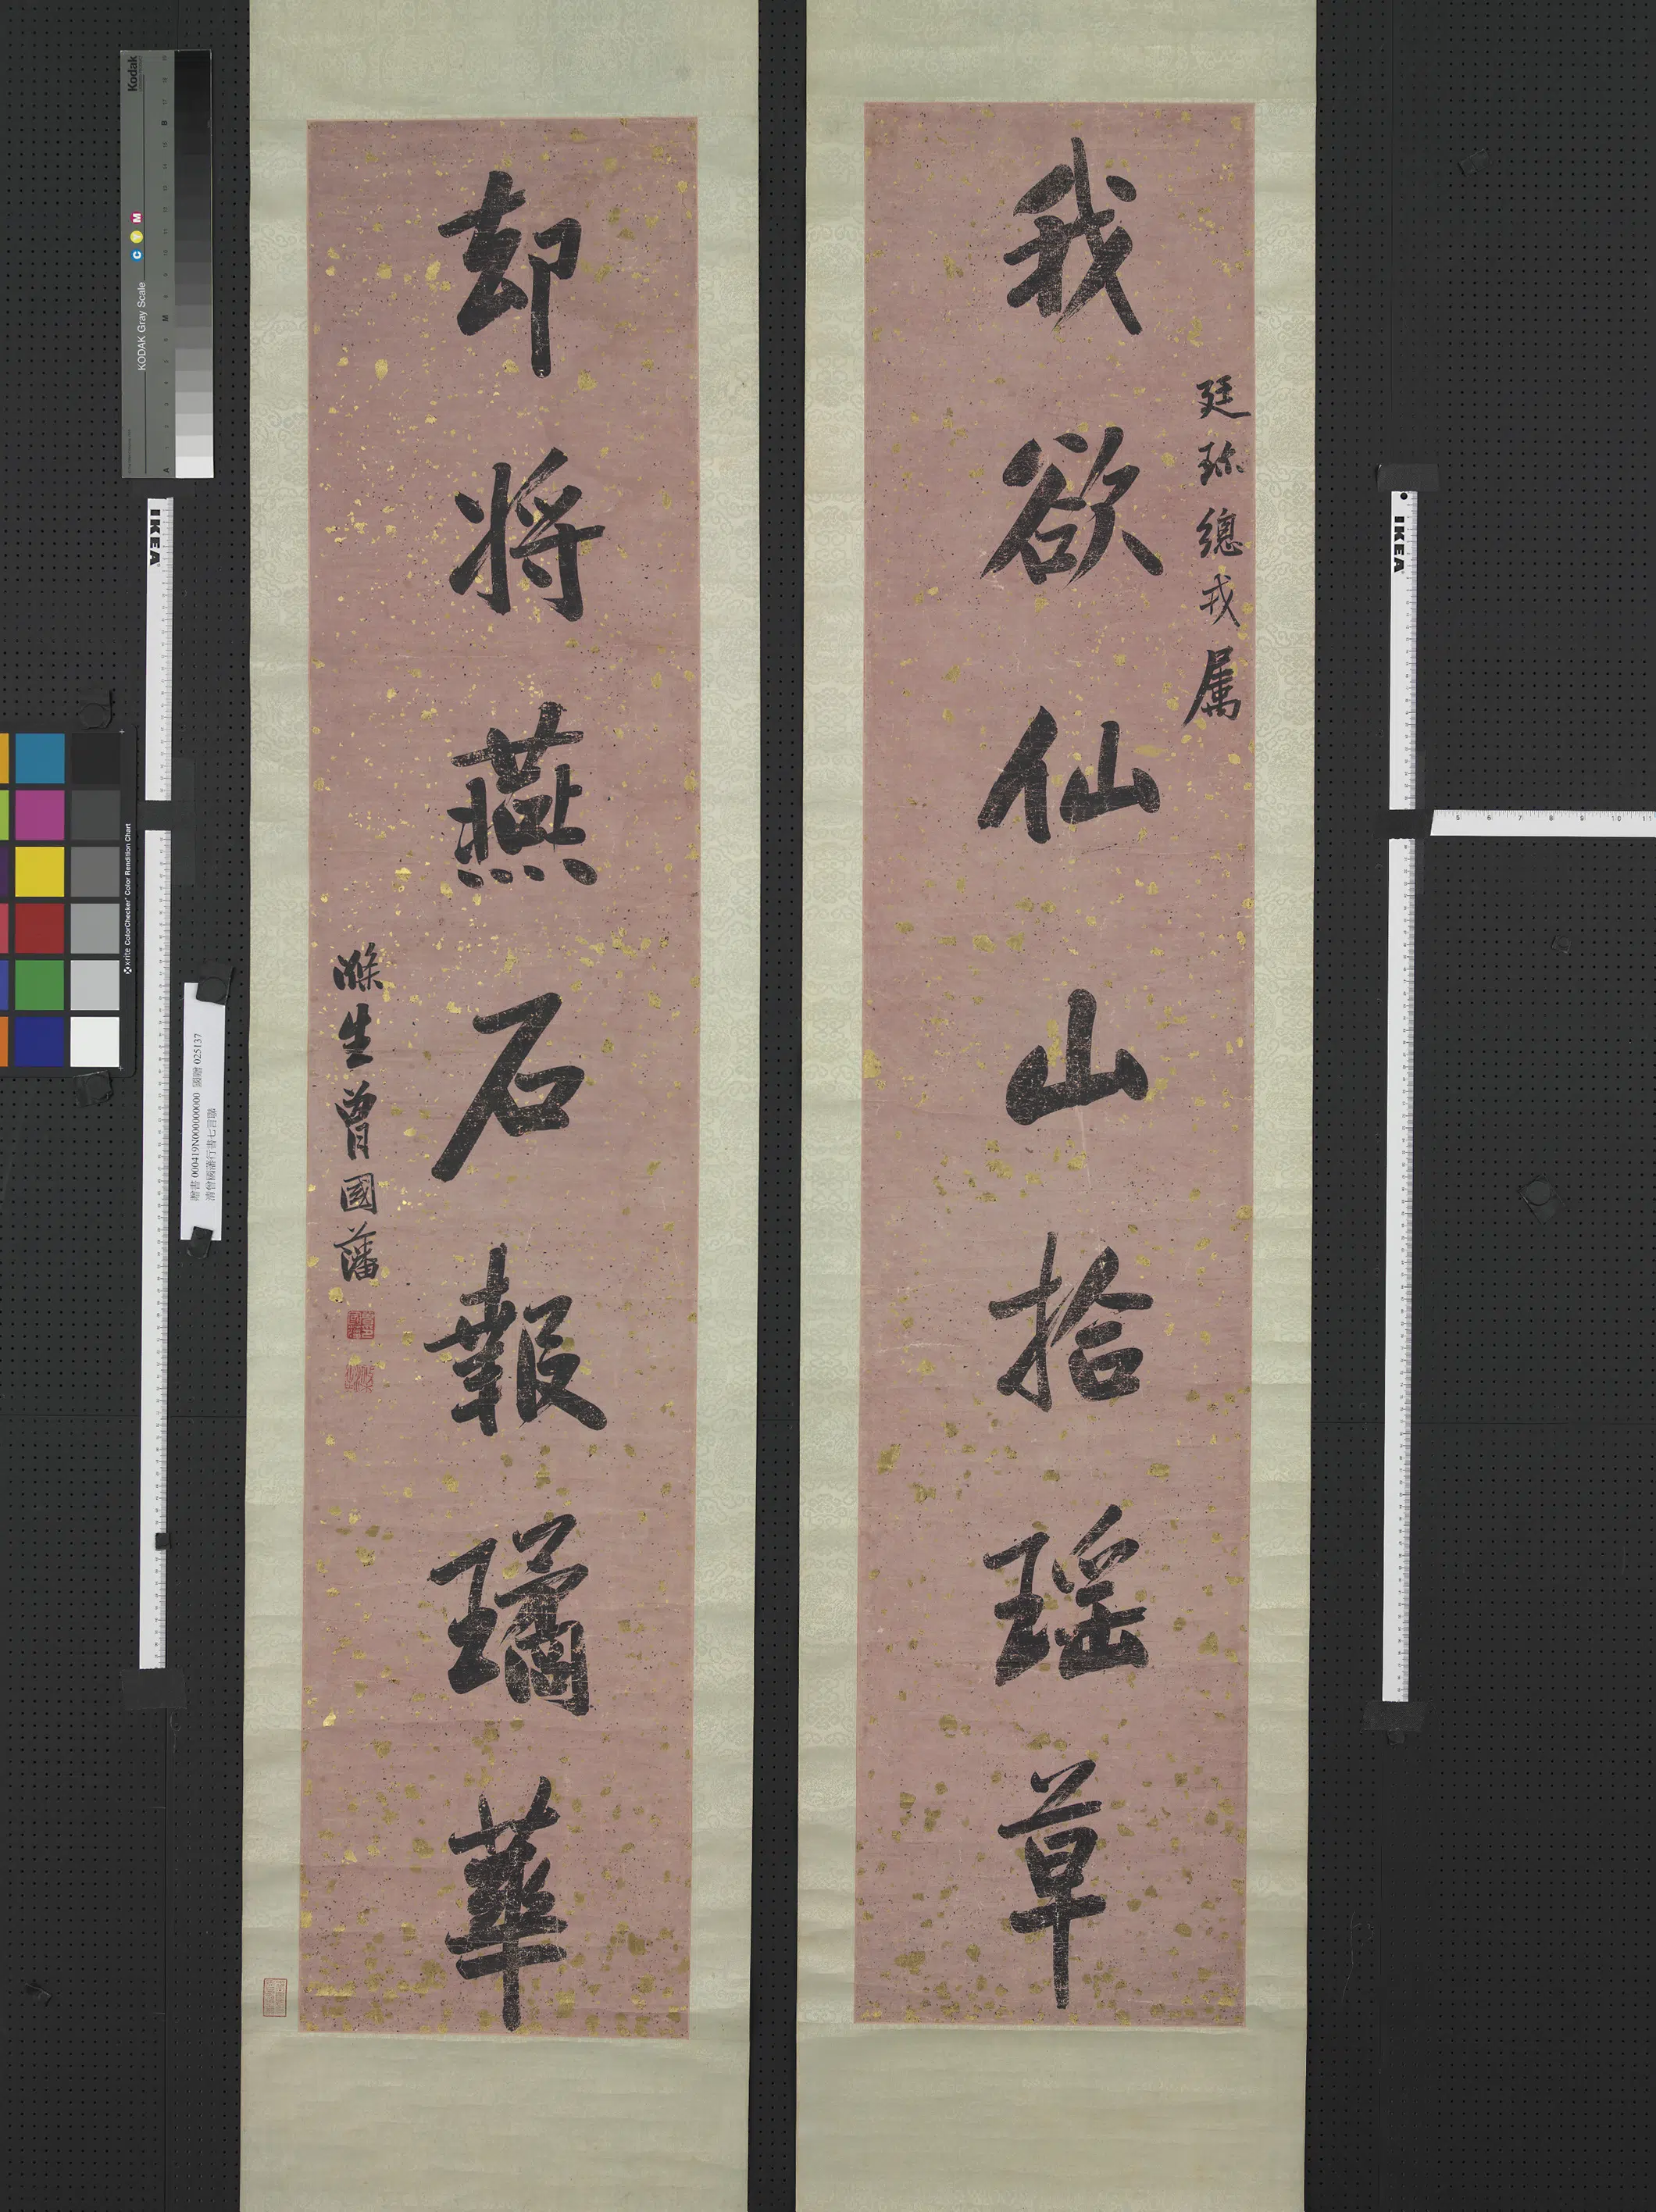 我欲仙山拾瑤草
廷珎總戎属
却將燕石報璚華
滌生曾國藩
Kodak
KODAK Gray Scale
C Y M
A
M
B
IKEA
IKEA
x-rite ColorChecker Color Rendition Chart
贈書 000419N000000000 國贈 025137
清曾國藩行書七言聯
5 6 7 8 9 10 11